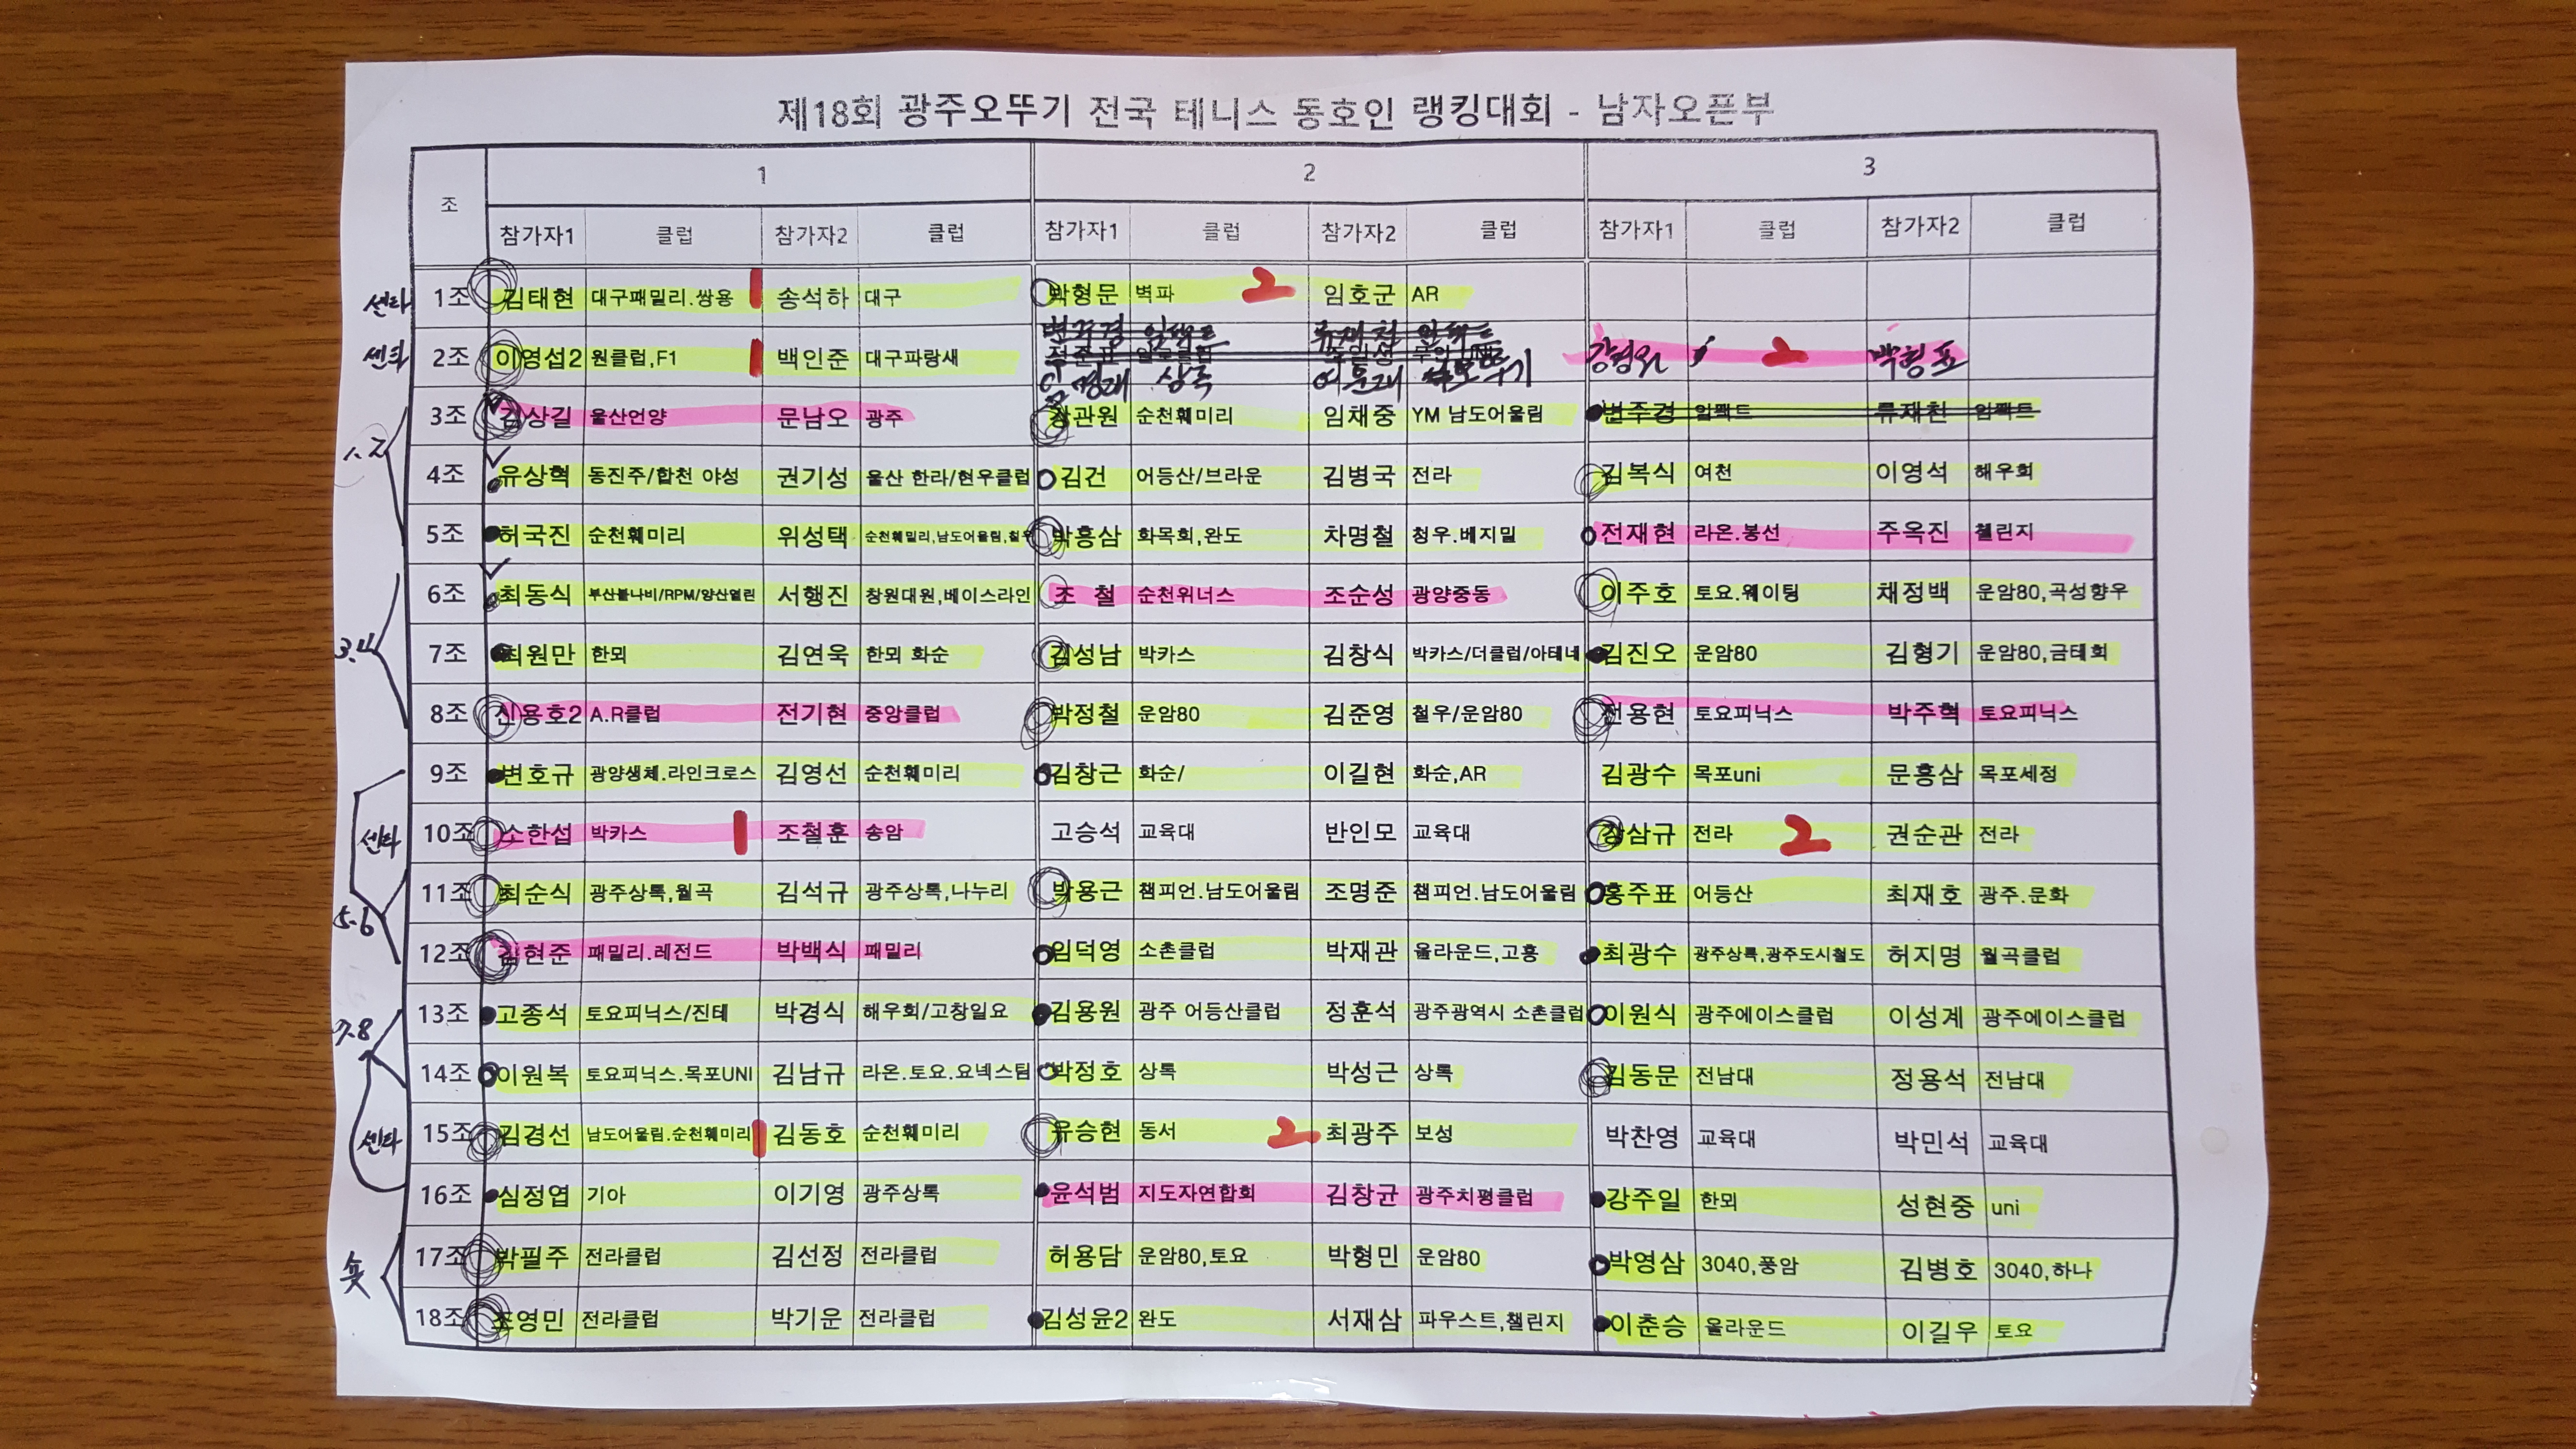 제18회 광주오뚜기 전국 테니스 동호인 랭킹대회 - 남자오픈부
조 1 2 3
참가자1 클럽 참가자2 클럽 참가자1 클럽 참가자2 클럽 참가자1 클럽 참가자2 클럽
센타 1조 김태현 대구패밀리.쌍용 1 송석하 대구 박형문 벽파 2 임호군 AR
변주경 임팩트 류재천 임팩트
센타 2조 이영섭2 원클럽,F1 1 백인준 대구파랑새 강정원 2 박형표
상록
3조 김상길 울산언양 문남오 광주 장관원 순천훼미리 임채중 YM 남도어울림 변주경 임팩트 류재천 임팩트
1.2 4조 유상혁 동진주/합천 야성 권기성 울산 한라/현우클럽 김건 어등산/브라운 김병국 전라 김복식 여천 이영석 해우회
5조 허국진 순천훼미리 위성택 순천훼밀리,남도어울림,칠우 박흥삼 화목회,완도 차명철 청우.베지밀 전재현 라온.봉선 주옥진 챌린지
6조 최동식 부산불나비/RPM/양산열린 서행진 창원대원,베이스라인 조 철 순천위너스 조순성 광양중동 이주호 토요.웨이팅 채정백 운암80,곡성향우
3.4 7조 최원만 한뫼 김연욱 한뫼 화순 김성남 박카스 김창식 박카스/더클럽/아테네 김진오 운암80 김형기 운암80,금테회
8조 신용호2 A.R클럽 전기현 중앙클럽 박정철 운암80 김준영 철우/운암80 전용현 토요피닉스 박주혁 토요피닉스
9조 변호규 광양생체.라인크로스 김영선 순천훼미리 김창근 화순/ 이길현 화순,AR 김광수 목포uni 문흥삼 목포세정
센타 10조 소한섭 박카스 1 조철훈 송암 고승석 교육대 반인모 교육대 강삼규 전라 2 권순관 전라
5-6 11조 최순식 광주상록,월곡 김석규 광주상록,나누리 박용근 챔피언.남도어울림 조명준 챔피언.남도어울림 홍주표 어등산 최재호 광주.문화
12조 김현준 패밀리.레전드 박백식 패밀리 임덕영 소촌클럽 박재관 올라운드,고흥 최광수 광주상록,광주도시철도 허지명 월곡클럽
7-8 13조 고종석 토요피닉스/진테 박경식 해우회/고창일요 김용원 광주 어등산클럽 정훈석 광주광역시 소촌클럽 이원식 광주에이스클럽 이성계 광주에이스클럽
14조 이원복 토요피닉스.목포UNI 김남규 라온.토요.요넥스팀 박정호 상록 박성근 상록 김동문 전남대 정용석 전남대
센타 15조 김경선 남도어울림.순천훼미리 1 김동호 순천훼미리 유승현 동서 2 최광주 보성 박찬영 교육대 박민석 교육대
16조 심정엽 기아 이기영 광주상록 윤석범 지도자연합회 김창균 광주치평클럽 강주일 한뫼 성현중 uni
숏 17조 박필주 전라클럽 김선정 전라클럽 허용담 운암80,토요 박형민 운암80 박영삼 3040,풍암 김병호 3040,하나
18조 조영민 전라클럽 박기운 전라클럽 김성윤2 완도 서재삼 파우스트,챌린지 이춘승 올라운드 이길우 토요